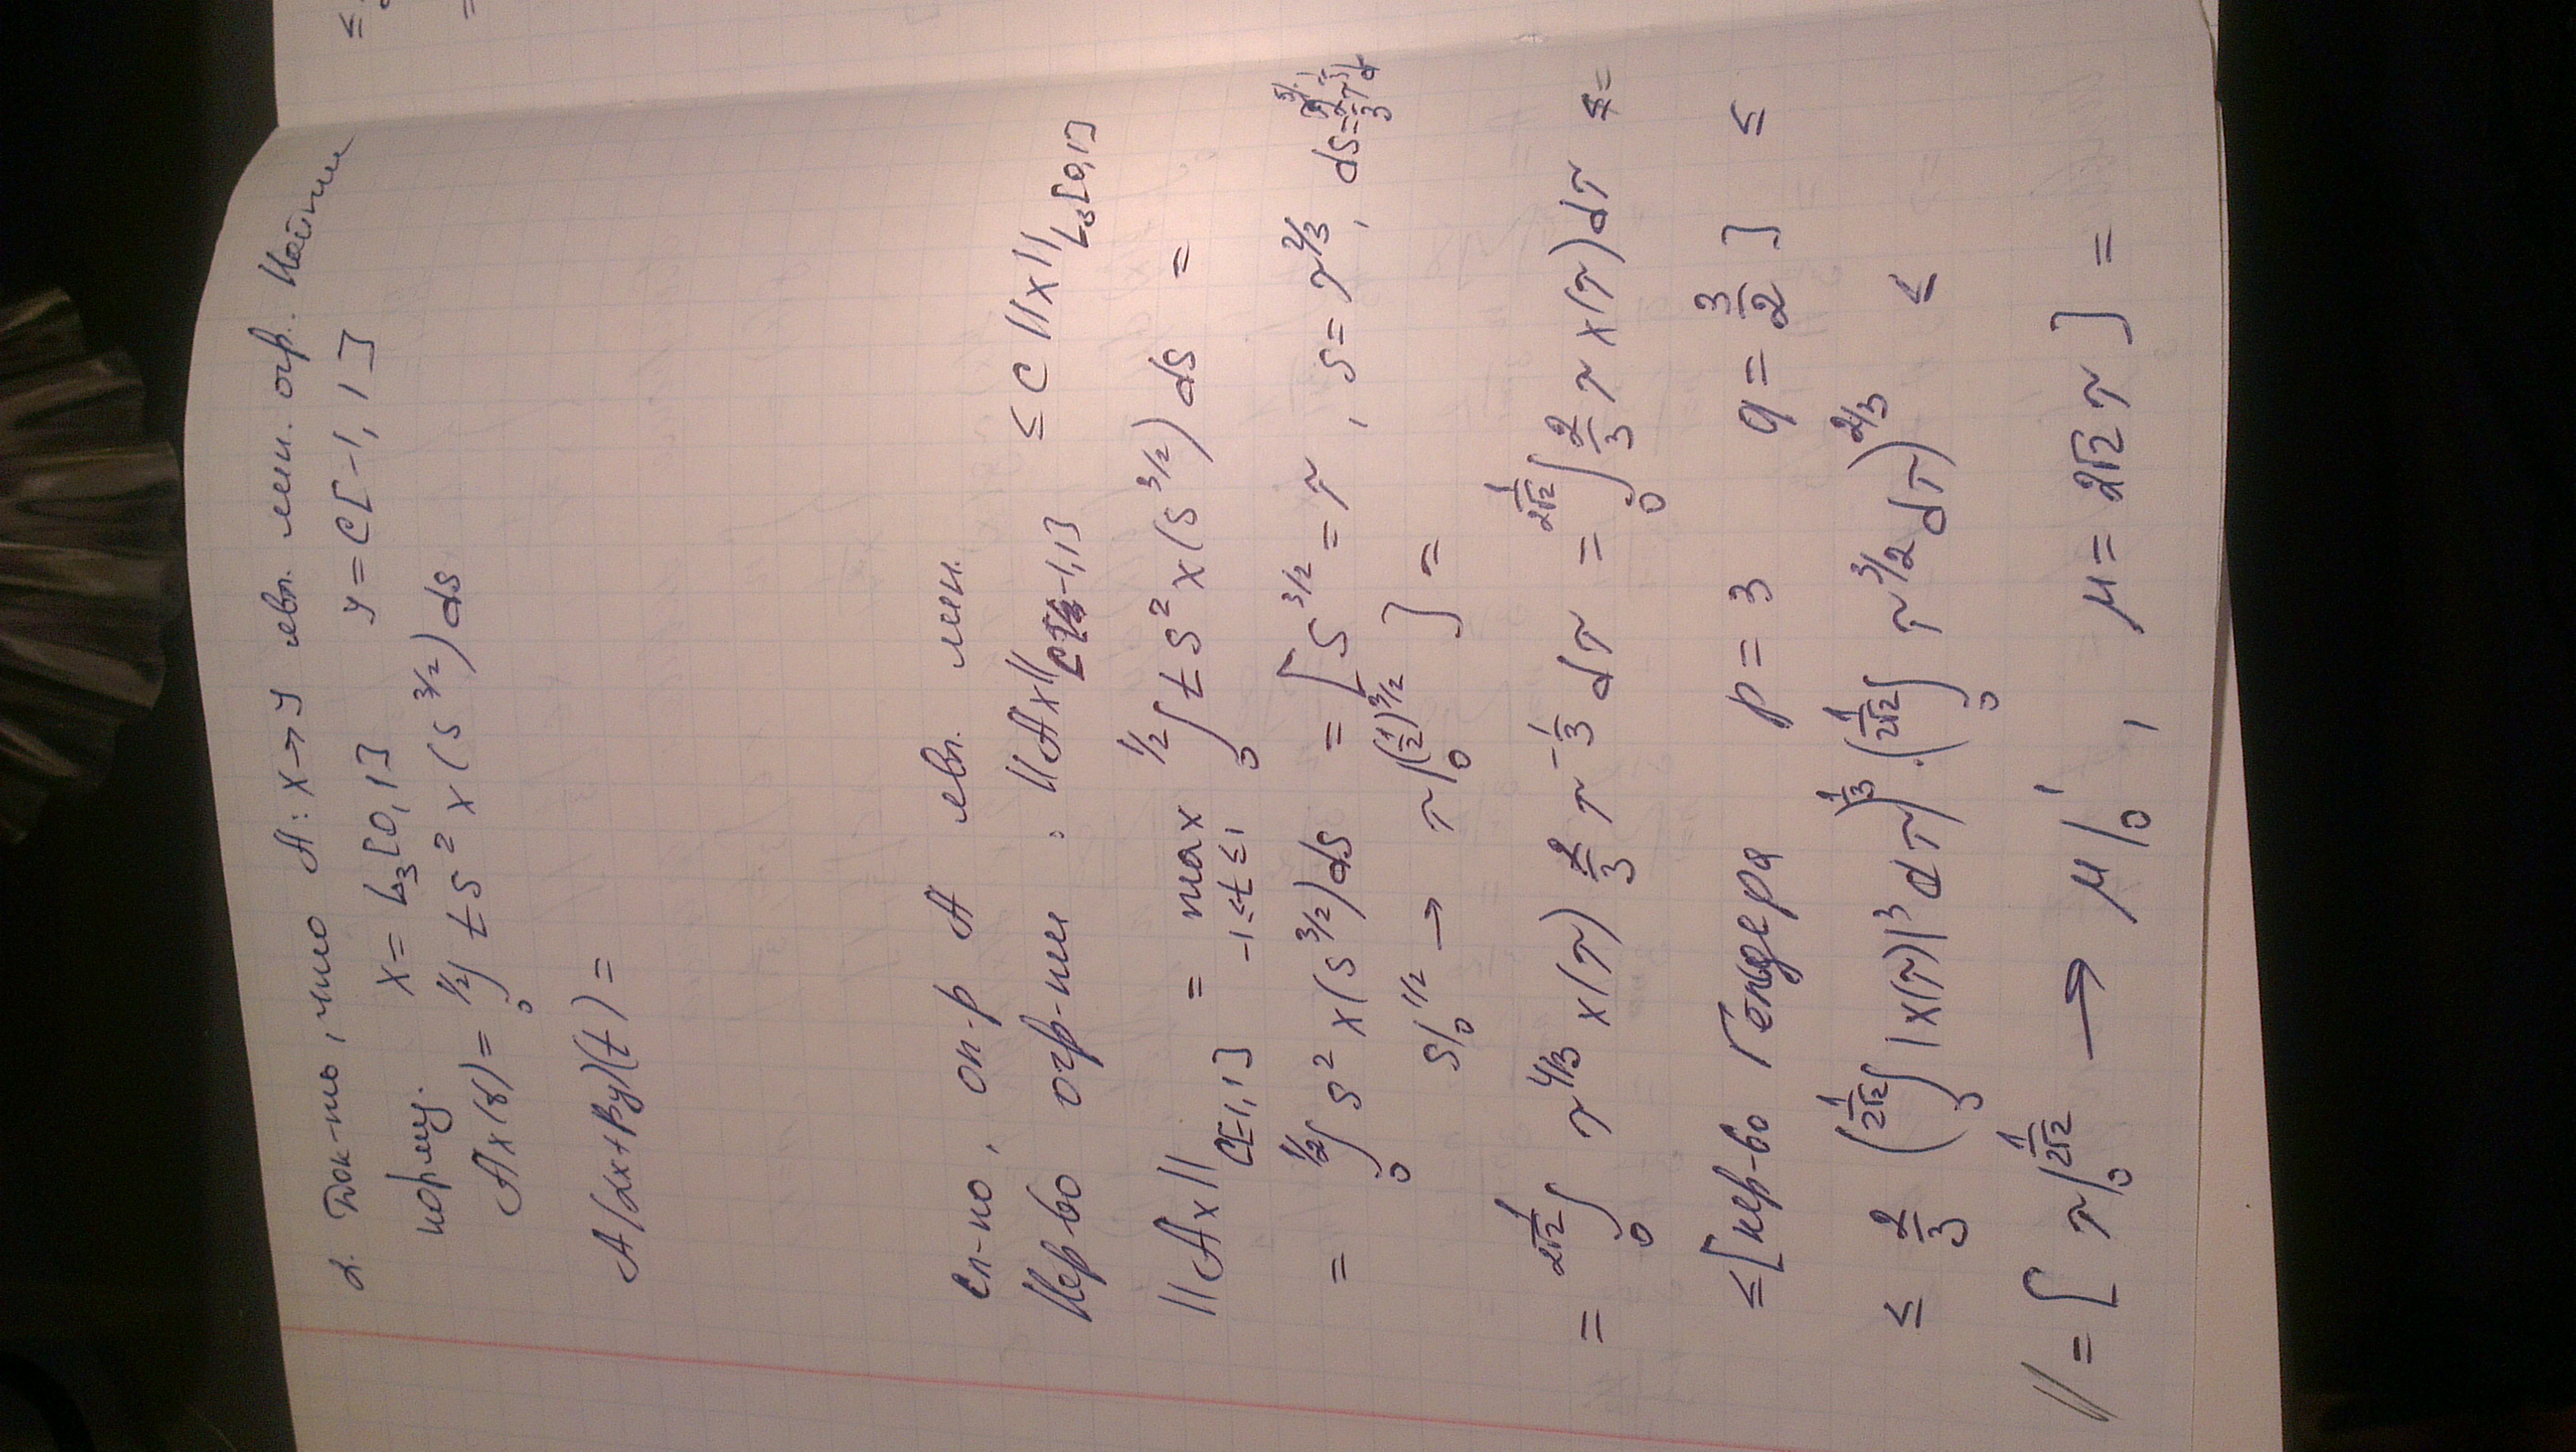 2. Док-ть, что A: X→Y явл. лин. огр. Найти
норму. X = L₃[0,1] Y = C[-1,1]
Ax(t) = ∫₀^{1/2} t s² x(s^{3/2}) ds
A(αx+βy)(t) =
Сл-но, оп-р A явл. лин.
Нер-во огр-ти: ||Ax||_{C[-1,1]} ≤ C ||x||_{L₃[0,1]}
||Ax||_{C[-1,1]} = max_{-1≤t≤1} ∫₀^{1/2} t s² x(s^{3/2}) ds =
= ∫₀^{1/2} s² x(s^{3/2}) ds = [ s^{3/2} = τ, s = τ^{2/3}, ds =
s|₀^{1/2} → τ|₀^{(1/2)^{3/2}} ] =
= ∫₀^{1/(2√2)} τ^{4/3} x(τ) 2/3 τ^{-1/3} dτ = ∫₀^{1/(2√2)} 2/3 τ x(τ) dτ =
≤ [нер-во Гёльдера p = 3 q = 3/2 ] ≤
≤ 2/3 (∫₀^{1/(2√2)} |x(τ)|³ dτ)^{1/3} · (∫₀^{1/(2√2)} τ^{3/2} dτ)^{2/3} ≤
// = [ τ|₀^{1/(2√2)} → μ|₀^1, μ = 2√2 τ ] =